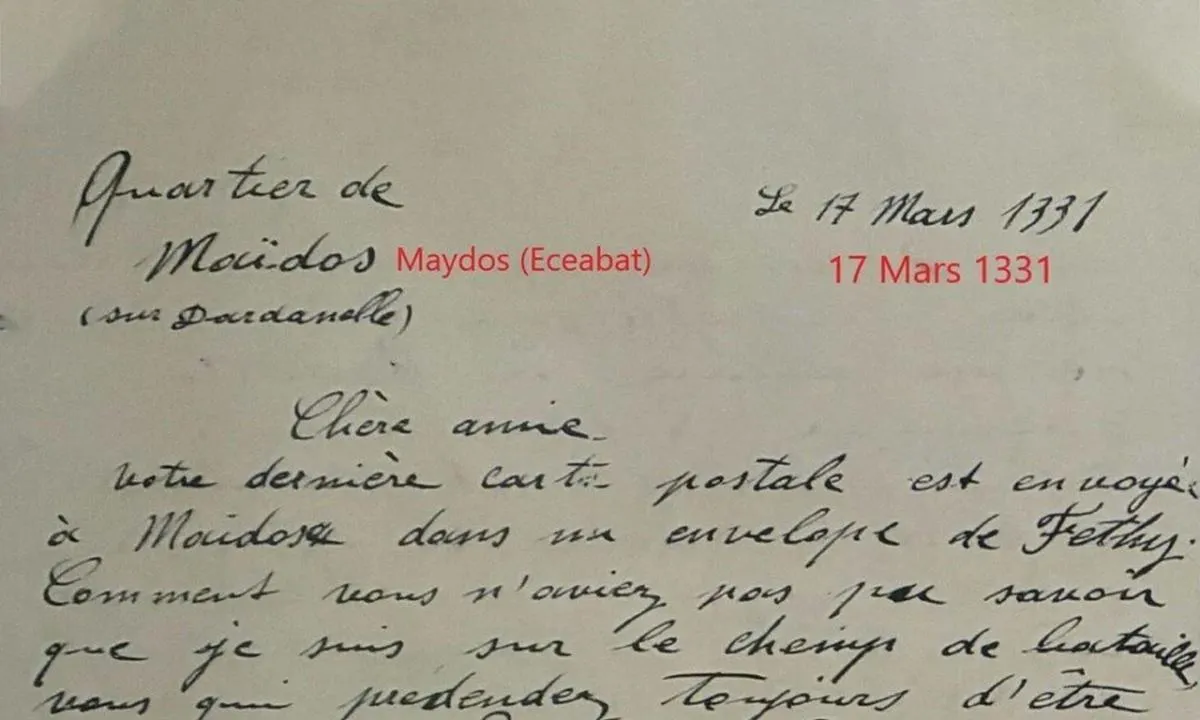 Quartier de
Le 17 Mars 1331
Maïdos Maydos (Eceabat)
17 Mars 1331
(sur Dardanelle)
Chère amie.
votre dernière carte postale est envoyé
à Maidos dans un envelope de Fethy.
Comment vous n'aviez pas pu savoir
que je suis sur le chemp de bataille,
vous qui predendez toujours d'être